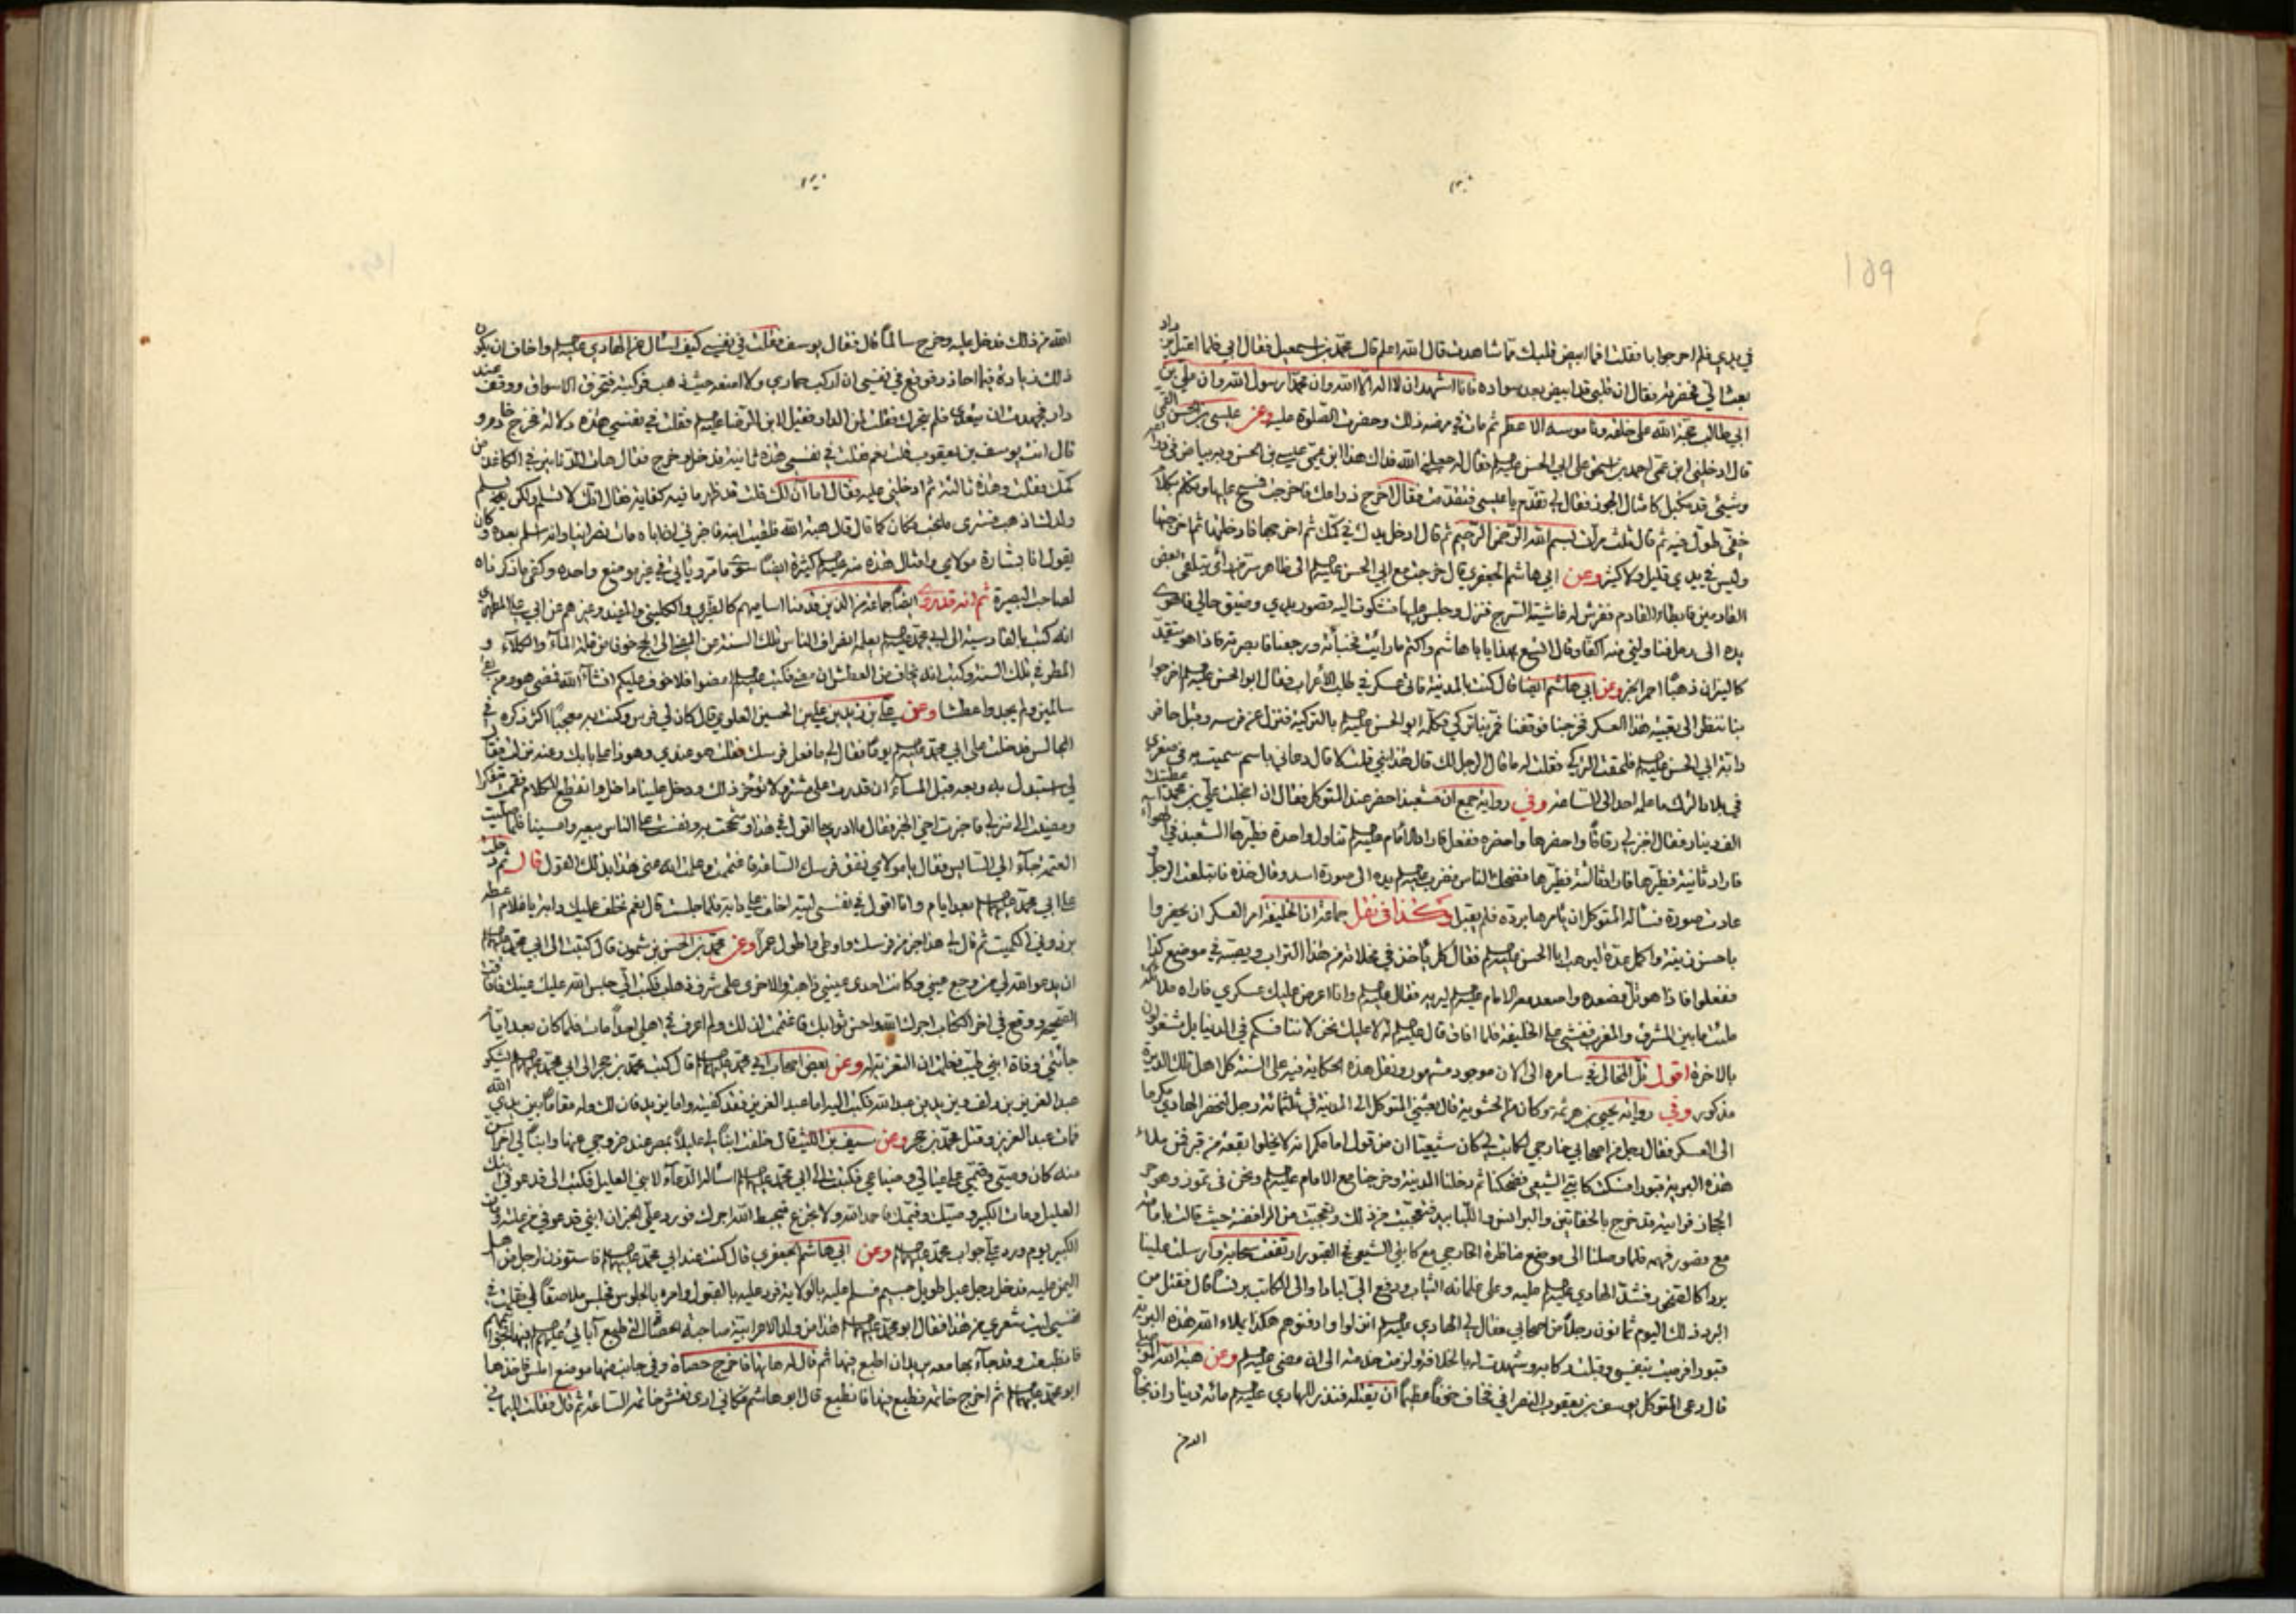 159
في يدي فلم احر جوابا فقلت اما ابيض قلبك مما شاهدت قال الله اعلم قال محمد بن اسمعيل فقال ابي فلما اعتل
بعث الي فحضرته فقال ان قلبي قد ابيض بعد سواده فانا اشهد ان لا اله الا الله وان محمدا رسول الله وان علي بن
ابي طالب حجة الله على خلقه وناموسه الاعظم ثم مات في مرضه ذلك وحضرت الصلوة عليه وعن عيسى بن الحسن القمي
قال ادخلني ابن عمي احمد بن اسحق على ابي الحسن فقال له جعلني الله فداك هذا ابن عمي عيسى بن الحسن وبه بياض في ذراعه
وشيئ قد تكبل كامثال الجوز فقال لي تقدم يا عيسى فتقدمت فقال اخرج ذراعك فاخرجت فمسح عليها وتكلم بكلام
خفي طول فيه ثم قال ثلث مرات بسم الله الرحمن الرحيم ثم قال ادخل يدك في كمك ثم اخرجها فادخلتها ثم اخرجتها
وليس في يدي قليل ولا كثير وعن ابي هاشم الجعفري قال خرجت مع ابي الحسن الى ظاهر سر من راى يتلقى بعض
القادمين فابطاء القادم ففرش له غاشية السرج فنزل وجلس عليها فشكوت اليه قصور يدي وضيق حالي فاهوى
يده الى رمل فناولني منه اكفا وقال اتسع بهذا يا ابا هاشم واكتم ما رايت فخبأته ورجعنا فابصرته فاذا هو يتقد
كالنيران ذهبا احمر الخبر وعن ابي هاشم ايضا قال كنت بالمدينة فاتى عسكر في طلب الاعراب فقال ابو الحسن اخرجوا
بنا ننظر الى تعبية هذا العسكر فخرجنا فوقفنا فمر بنا تركي فكلمه ابو الحسن بالتركية فنزل عن فرسه وقبل حافر
دابة ابي الحسن فلحقت التركي فقلت له ما قال الرجل لك قال هذا نبي قلت لا قال دعاني باسم سميت به في صغري
في بلاد الترك ما علمه احد الى الساعة وفي رواية جمع ان مشعبذا حضر عند المتوكل فقال ان اخجلت علي بن محمد
الف دينار فقال اخبز لي رقاقا واحضرها واحضره ففعل فاراد الامام تناول واحدة فطيرها المشعبذ في الهواء
فاراد ثانية فطيرها فاراد ثالثة فطيرها فضحك الناس فضرب يده الى صورة اسد وقال خذه فابتلعت الرجل
عادت صورة فسأله المتوكل ان يأمرها برده فلم يقبل وكذا في نقل جماعة ان الخليفة امر العسكر ان يحضروا
باحسن زينة واكمل عدة ليرهب ابا الحسن فقال كل يأخذ في مخلاته من هذا التراب ويصبه في موضع كذا
ففعلوا فاذا هو تل فصعده واصعد معه الامام ليريه فقال وانا اعرض عليك عسكري فاراه ملائكة
ملئت ما بين المشرق والمغرب فغشي على الخليفة فلما افاق قال له لا عليك نحن لا ننافسكم في الدنيا بل مشغولون
بالاخرة اقول تل المخالي في سامره الى الان موجود مشهور ونقل هذه الحكاية فيه على السنة كل اهل تلك الديرة
مذكور وفي رواية يحيى بن هرثمة وكان من الحشوية قال بعثني المتوكل الى المدينة في ثلثمائة رجل لاحضر الهادي مكرما
الى العسكر فقال رجل من اصحابي خارجي لكاتب لي كان شيعيا ان من قول امامكم انه لا يخلو بقعة من قبر فمن يملاء
هذه البرية قبورا فسكت كاتبي الشيعي فضحكنا ثم دخلنا المدينة وخرجنا مع الامام ونحن في تموز وهو حر
الحجاز فرايته قد خرج بالخفاتين والبرانس واللبابيد فتعجبت من ذلك وتعجبت من الرافضة حيث قالت بامامته
مع قصور فهمه فلما وصلنا الى موضع مناظرة الخارجي مع كاتبي الشيعي في القبور ارتفعت سحابة وارسلت علينا
بردا كالصخر فشد الهادي عليه وعلى غلمانه الثياب ودفع الي لبادا والى الكاتب برنسا قال فقتل من
البرد ذلك اليوم ثمانون رجلا من اصحابي فقال لي الهادي انزلوا وادفنوهم هكذا يملاء الله هذه البرية
قبورا فرميت بنفسي وقبلت ركابه وشهدت له بالخلافة ولزمت خدمته الى ان مضى وعن هبة الله الموصلي
قال دعى المتوكل يوسف بن يعقوب النصراني فخاف خوفا عظيما ان يقتله فنذر للهادي مائة دينار ان نجاه
الله من
الله من ذلك فدخل عليه وخرج سالما قال فقال يوسف فقلت في نفسي كيف اسأل عن الهادي واخاف ان يكون
ذلك زيادة فيما احاذر فوقع في نفسي ان اركب حماري ولا امنعه حيث ذهب فركبته فتخرق الاسواق ووقف عند
دار فجهدت ان يتعدى فلم يتحرك فقلت لمن الدار فقيل لابن الرضا فقلت في نفسي هذه دلالة فخرج خادم و
قال انت يوسف بن يعقوب قلت نعم فقلت في نفسي هذه ثانية فدخل وخرج فقال هات المائة التي في الكاغد من
كمك فقلت وهذه ثالثة ثم ادخلني عليه فقال اما آن لك قلت قد ظهر ما فيه كفاية فقال انك لا تسلم ولكن يسلم
ولدك اذهب فسترى ما تحب فكان كما قال قال هبة الله فلقيت ابنه فاخبرني ان اباه مات نصرانيا وانه اسلم بعده وكان
يقول انا بشارة مولاي وامثال هذه منه كثيرة ايضا سوى ما مر ويأتي في غير موضع واحد وكفى ما ذكرناه
لصاحب البصيرة ثم انه قد روى ايضا جماعة من الذين قدمنا اساميهم كالطبري والكليني والمفيد وغيرهم عن ابي علي المطهري
انه كتب بالقادسية الى ابي محمد يعلمه انصراف الناس تلك السنة عن المضي الى الحج خوفا من قلة الماء والكلاء و
المطر في تلك السنة وكتب انه يخاف من العطش ان مضى فكتب امضوا فلا خوف عليكم انشاء الله فمضى هو ومن بقي
سالمين ولم يجدوا عطشا وعن علي بن زيد بن علي بن الحسين العلوي قال كان لي فرس وكنت به معجبا اكثر ذكره في
المجالس فدخلت على ابي محمد يوما فقال لي ما فعل فرسك فقلت هو عندي وهو ذا على بابك وعنه نزلت فقال
لي استبدل به وبعه قبل المساء ان قدرت على مشتر ولا تؤخر ذلك ودخل علينا داخل وانقطع الكلام فقمت متفكرا
ومضيت الى منزلي فاخبرت اخي الخبر فقال ما ادري ما اقول في هذا وشححت به ونفست على الناس ببيعه وامسينا فلما صليت
العتمة جاء الي السايس فقال يا مولاي نفق فرسك الساعة فاغتممت وعلمت انه عنى هذا بذلك القول قال ثم دخلت
على ابي محمد بعد ايام وانا اقول في نفسي ليته اخلف علي دابة فلما جلست قال نعم نخلف عليك دابة يا غلام اعطه
برذوني الكميت ثم قال لي هذا خير من فرسك واوطى واطول عمرا وعن محمد بن الحسن بن شمون قال كتبت الى ابي محمد
ان يدعو الله لي من وجع عيني وكانت احدى عيني ذاهبة والاخرى على شرف ذهاب فكتب الي حبس الله عليك عينك فافاقت
الصحيحة ووقع في اخر الكتاب اجرك الله واحسن ثوابك فاغتممت لذلك ولم اعرف في اهلي احدا مات فلما كان بعد ايام
جائتني وفاة ابني طيب فعلمت ان التعزية له وعن بعض اصحاب ابي محمد قال كتب محمد بن حجر الى ابي محمد يشكو
عبد العزيز بن دلف ويزيد بن عبد الله فكتب اليه اما عبد العزيز فقد كفيته واما يزيد فان لك وله مقاما بين يدي الله
فمات عبد العزيز وقتل محمد بن حجر وعن سيف بن الليث قال خلفت ابنا لي عليلا بمصر عند خروجي عنها وابنا لي اخر اسن
منه كان وصيي وقيمي على عيالي وضياعي فكتبت الى ابي محمد اسأله الدعاء لابني العليل فكتب الي قد عوفي ابنك
العليل ومات الكبير وصيك وقيمك فاحمد الله ولا تجزع فيحبط الله اجرك فورد علي الخبر ان ابني قد عوفي من علته ومات
الكبير يوم ورد علي جواب محمد وعن ابي هاشم الجعفري قال كنت عند ابي محمد فاستوذن لرجل من اهل
اليمن عليه فدخل رجل عبل طويل جسيم فسلم عليه بالولاية فرد عليه بالقبول وامره بالجلوس فجلس ملاصقا لي فقلت في
نفسي ليت شعري من هذا فقال ابو محمد هذا من ولد الاعرابية صاحبة الحصاة التي طبع آبائي فيها بخواتيمهم
فانطبعت وقد جاء بها معه يريد ان اطبع فيها ثم قال له هاتها فاخرج حصاة وفي جانب منها موضع املس فاخذها
ابو محمد ثم اخرج خاتمه فطبع فيها فانطبع قال ابو هاشم فكاني ارى نقش خاتمه الساعة ثم قال فقلت لليماني